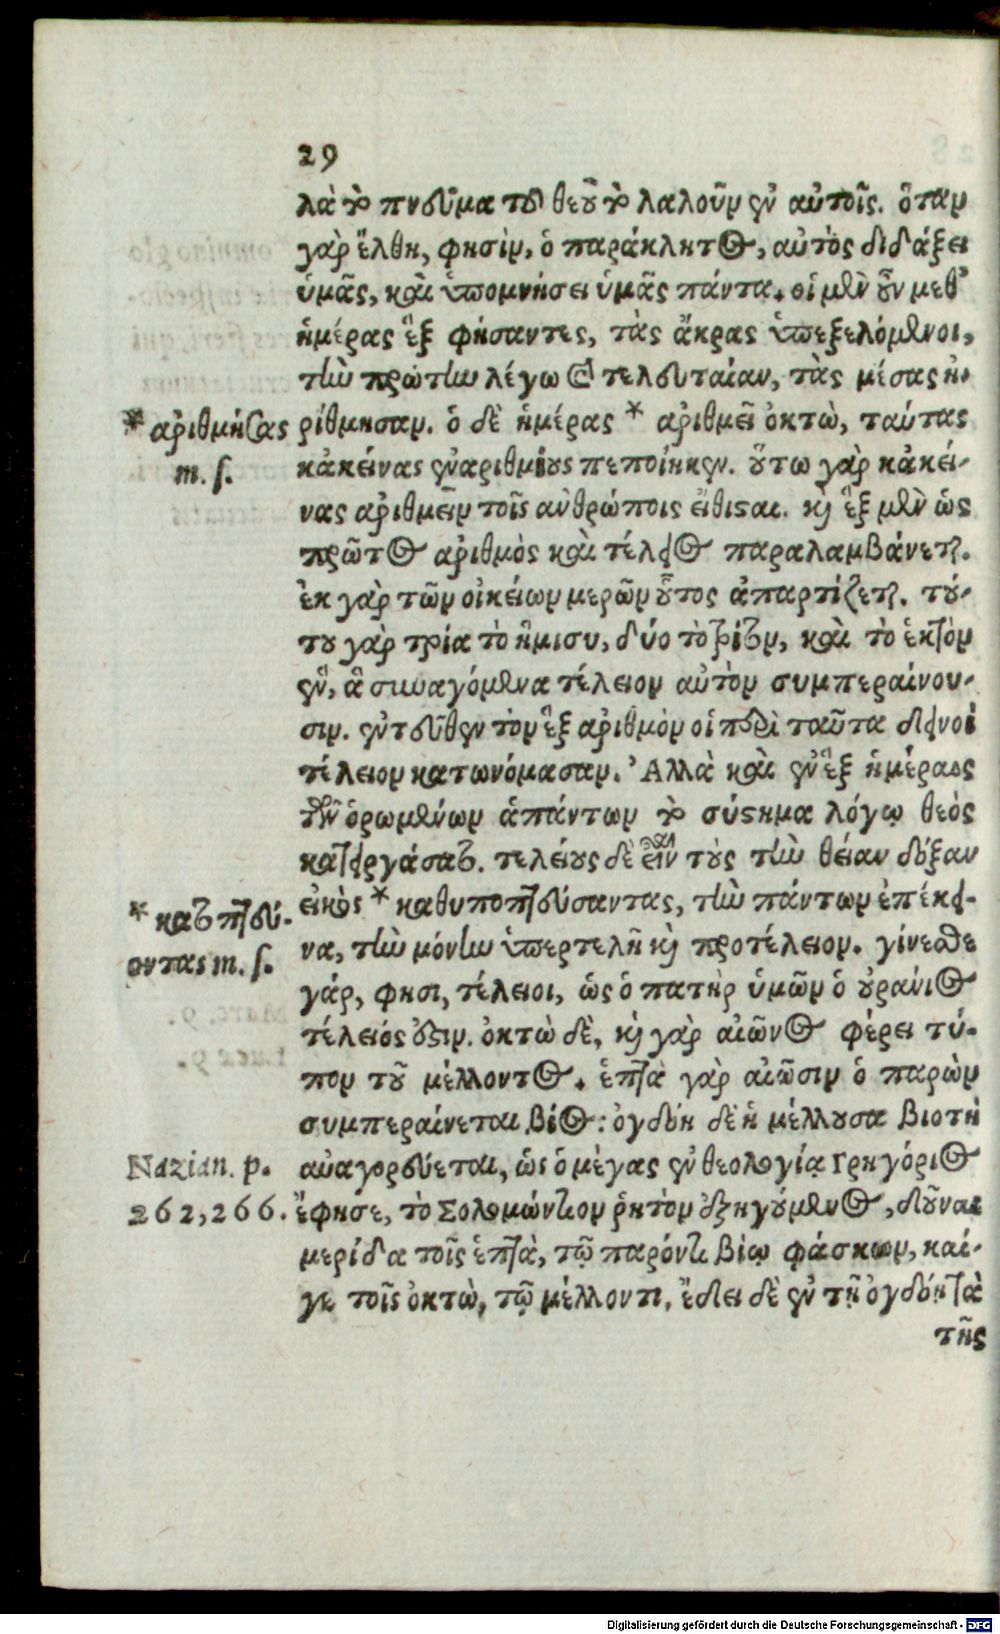 29
λὰ τὸ πνεῦμα τοῦ θεοῦ τὸ λαλοῦν ἐν αὐτοῖς. ὅταν
γὰρ ἔλθῃ, φησὶν, ὁ παράκλητος, αὐτὸς διδάξει
ὑμᾶς, καὶ ὑπομνήσει ὑμᾶς πάντα. οἱ μὲν οὖν μεθ'
ἡμέρας ἓξ φήσαντες, τὰς ἄκρας ὑπεξελόμενοι,
τὴν πρώτην λέγω καὶ τελευταίαν, τὰς μέσας ἠ-
* ἀριθμήσας ρίθμησαν. ὁ δὲ ἡμέρας * ἀριθμεῖ ὀκτὼ, ταύτας
m. s. κἀκείνας ἐναριθμίους πεποίηκεν. οὕτω γὰρ κἀκεί-
νας ἀριθμεῖν τοῖς ἀνθρώποις εἴθισαι. καὶ ἓξ μὲν ὡς
πρῶτος ἀριθμὸς καὶ τέλειος παραλαμβάνεται.
ἐκ γὰρ τῶν οἰκείων μερῶν οὗτος ἀπαρτίζεται. τού-
του γὰρ τρία τὸ ἥμισυ, δύο τὸ τρίτον, καὶ τὸ ἑκτὸν
ἓν, ἃ συναγόμενα τέλειον αὐτὸν συμπεραίνου-
σιν. ἐντεῦθεν τὸν ἓξ ἀριθμὸν οἱ περὶ ταῦτα δεινοὶ
τέλειον κατωνόμασαν. Ἀλλὰ καὶ ἐν ἓξ ἡμέραις
τῶν ὁρωμένων ἁπάντων τὸ σύστημα λόγῳ θεὸς
κατειργάσατο. τελείους δὲ εἶναι τοὺς τὴν θείαν δόξαν
* καθοπτευ- εἰκὸς * καθυποπτεύσαντας, τὴν πάντων ἐπέκει-
οντας m. s. να, τὴν μόνην ὑπερτελῆ καὶ προτέλειον. γίνεσθε
γάρ, φησι, τέλειοι, ὡς ὁ πατὴρ ὑμῶν ὁ οὐράνιος
τέλειός ἐστιν. ὀκτὼ δὲ, καὶ γὰρ αἰῶνος φέρει τύ-
πον τοῦ μέλλοντος. ἑπτὰ γὰρ αἰῶσιν ὁ παρὼν
συμπεραίνεται βίος: ὀγδόη δὲ ἡ μέλλουσα βιοτὴ
Nazian. p. ἀναγορεύεται, ὡς ὁ μέγας ἐν θεολογίᾳ Γρηγόριος
262, 266. ἔφησε, τὸ Σολομώντειον ῥητὸν ἐξηγούμενος, δοῦναι
μερίδα τοῖς ἑπτὰ, τῷ παρόντι βίῳ φάσκων, καί-
γε τοῖς ὀκτὼ, τῷ μέλλοντι, ἔδει δὲ ἐν τῇ ὀγδόῃ τὰ
τῆς
Digitalisierung gefördert durch die Deutsche Forschungsgemeinschaft - DFG